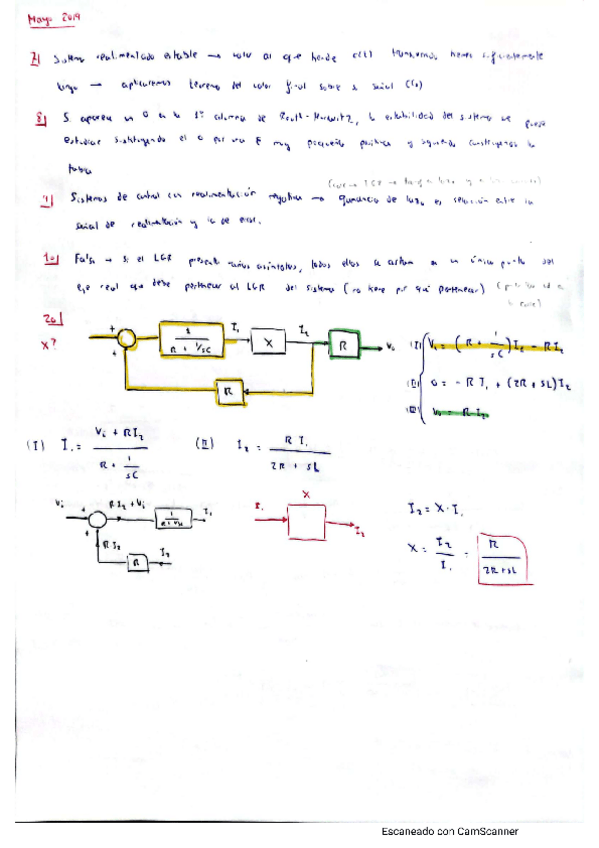 Mayo 2019
7) Sistema realimentado estable → valor al que tiende c(t) transcurrido tiempo suficientemente
largo → aplicaremos teorema del valor final sobre la señal C(s)
8) Si aparece un 0 en la 1ª columna de Routh-Hurwitz, la estabilidad del sistema se puede
estudiar sustituyendo el 0 por un ε muy pequeño positivo y seguir construyendo la
tabla
9) Sistemas de control con realimentación negativa → ganancia de lazo es relación entre la
señal de realimentación y la de error.
10) Falso → si el LGR presenta varias asíntotas, todas ellas se cortan en un único punto del
eje real que debe pertenecer al LGR del sistema (no tiene por qué pertenecer)
20)
X?
+
+
1
R + 1/sC
I₁
X
I₂
R
V₀
R
(I) Vᵢ = (R + 1/sC) I₁ - R I₂
(II) 0 = - R I₁ + (2R + sL) I₂
(III) V₀ = R I₂
(I) I₁ = Vᵢ + R I₂ / R + 1/sC
(II) I₂ = R I₁ / 2R + sL
Vᵢ
+
+
R I₂ + Vᵢ
1
R + 1/sC
I₁
R I₂
R
I₂
X
I₁
I₂
I₂ = X · I₁
X = I₂ / I₁ = R / 2R + sL
Escaneado con CamScanner